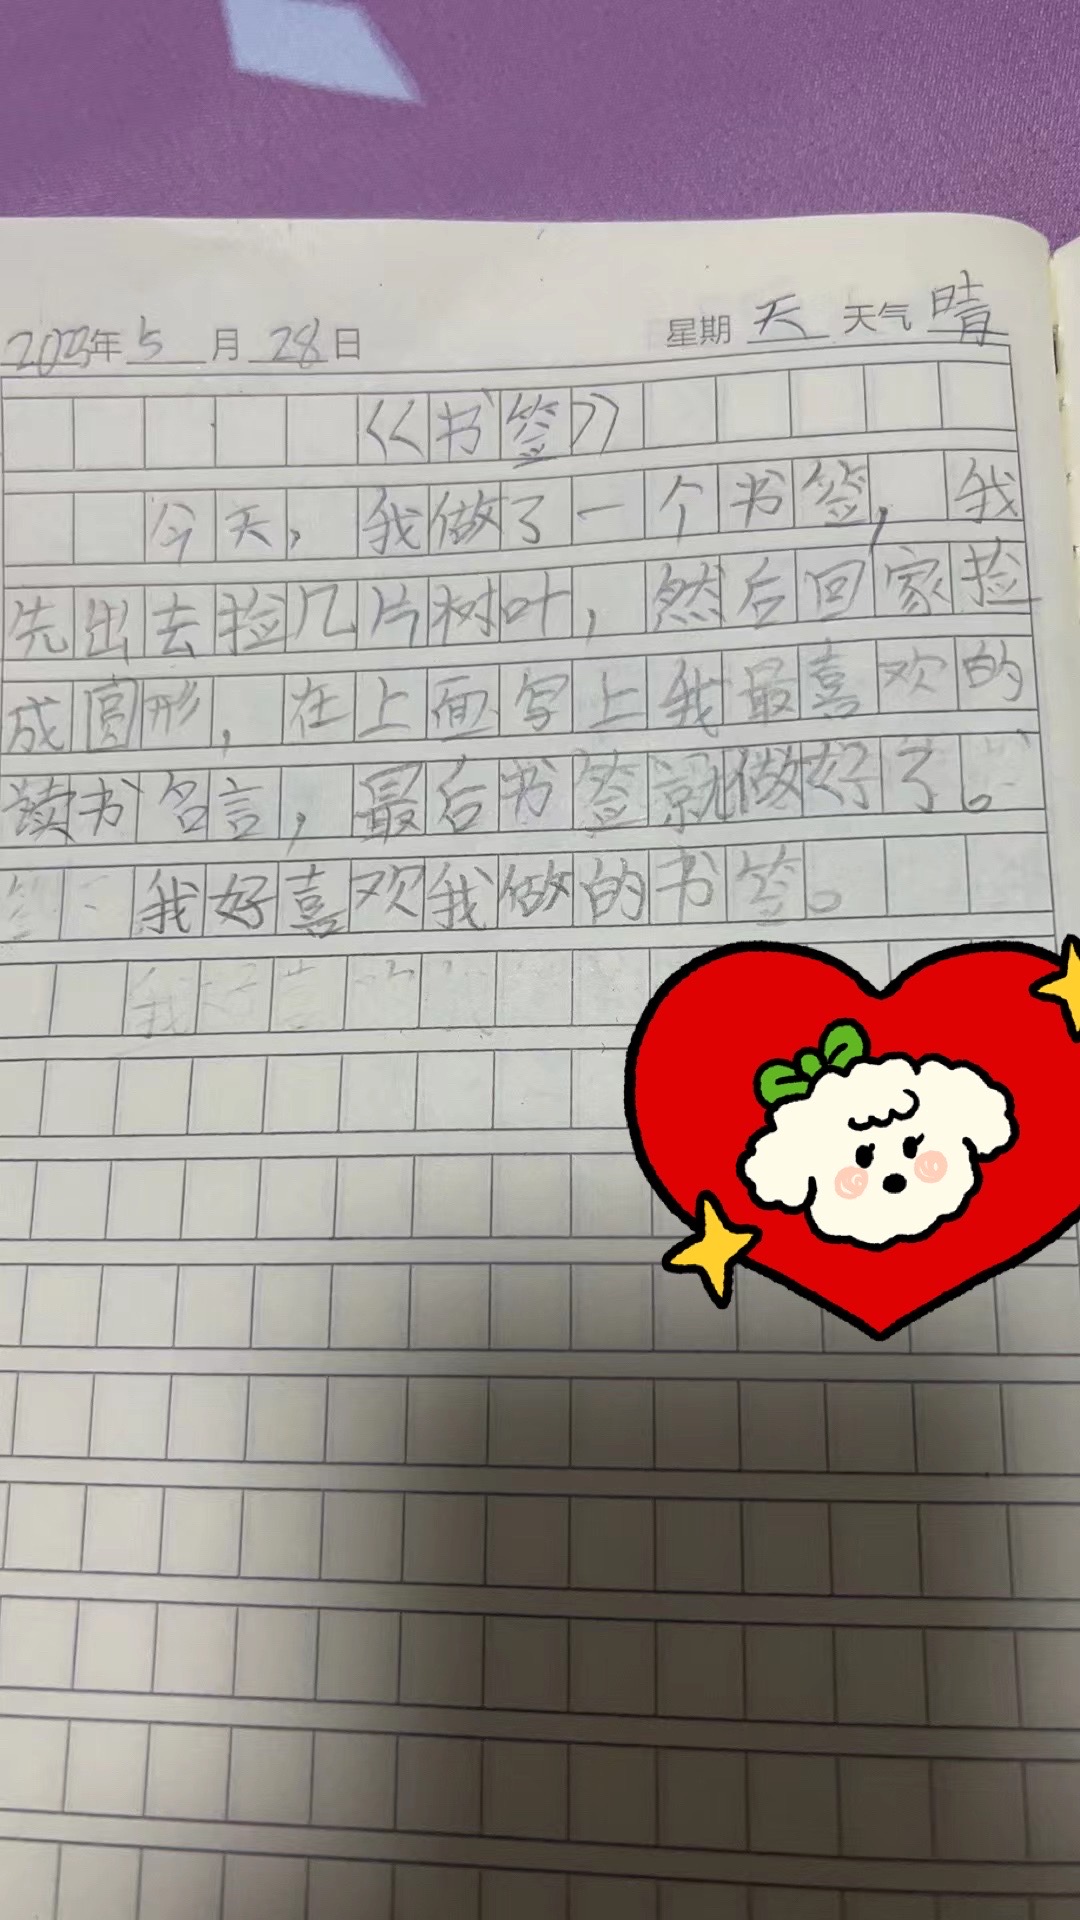 2023年5月28日 星期天 天气晴
《书签》
今天，我做了一个书签，我
先出去捡几片树叶，然后回家捡
成圆形，在上面写上我最喜欢的
读书名言，最后书签就做好了。
我好喜欢我做的书签。